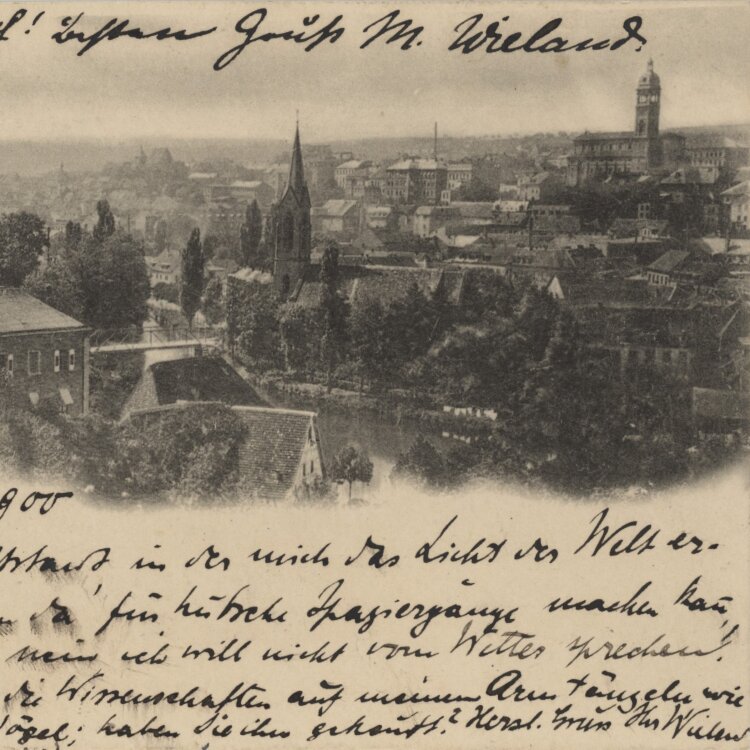 ! besten Gruß M. Wieland.
900
in der mich das Licht der Welt er-
da für hübsche Spaziergänge machen kan,
nein ich will nicht vom Wetter sprechen!
die Wissenschaften auf meinem Arm wie
Vögel; haben Sie ihn gekauft? Herzl. Gruss Ihr Wieland